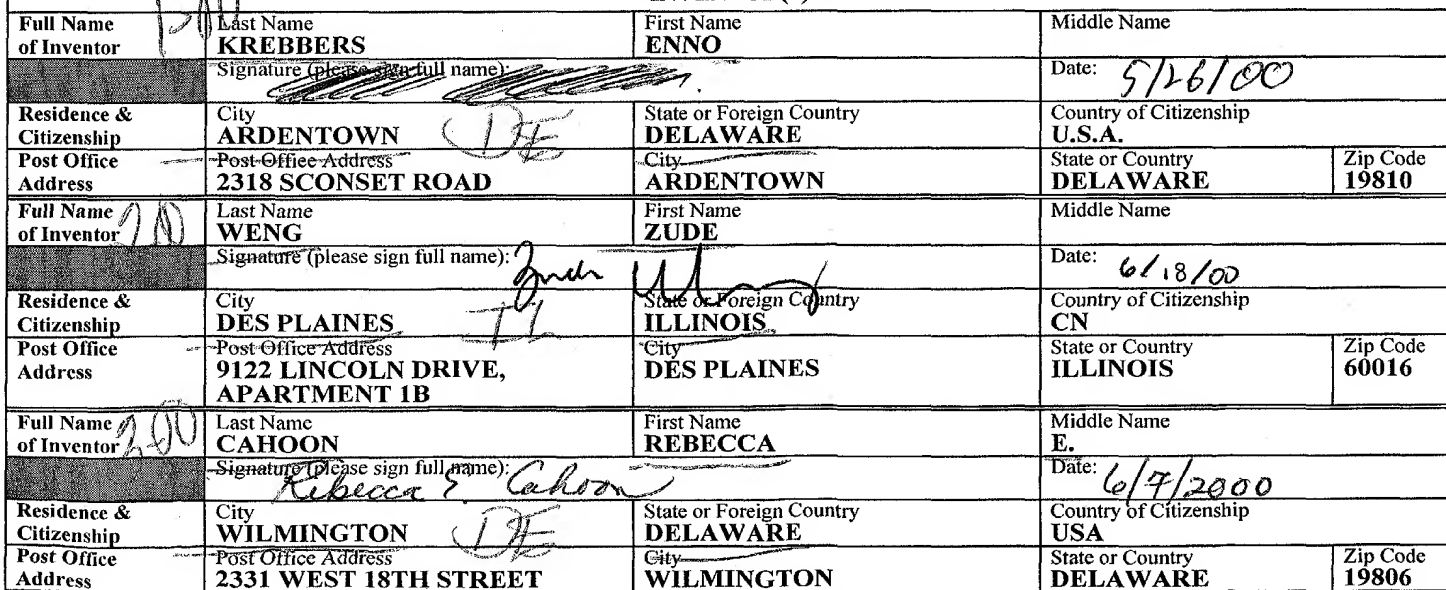 Full Name of Inventor Last Name KREBBERS First Name ENNO Middle Name
Signature (please sign full name): Date: 5/26/00
Residence & Citizenship City ARDENTOWN DE State or Foreign Country DELAWARE Country of Citizenship U.S.A.
Post Office Address Post Office Address 2318 SCONSET ROAD City ARDENTOWN State or Country DELAWARE Zip Code 19810
Full Name of Inventor Last Name WENG First Name ZUDE Middle Name
Signature (please sign full name): Date: 6/18/00
Residence & Citizenship City DES PLAINES IL State or Foreign Country ILLINOIS Country of Citizenship CN
Post Office Address Post Office Address 9122 LINCOLN DRIVE, APARTMENT 1B City DES PLAINES State or Country ILLINOIS Zip Code 60016
Full Name of Inventor Last Name CAHOON First Name REBECCA Middle Name E.
Signature (please sign full name): Rebecca E. Cahoon Date: 6/7/2000
Residence & Citizenship City WILMINGTON DE State or Foreign Country DELAWARE Country of Citizenship USA
Post Office Address Post Office Address 2331 WEST 18TH STREET City WILMINGTON State or Country DELAWARE Zip Code 19806